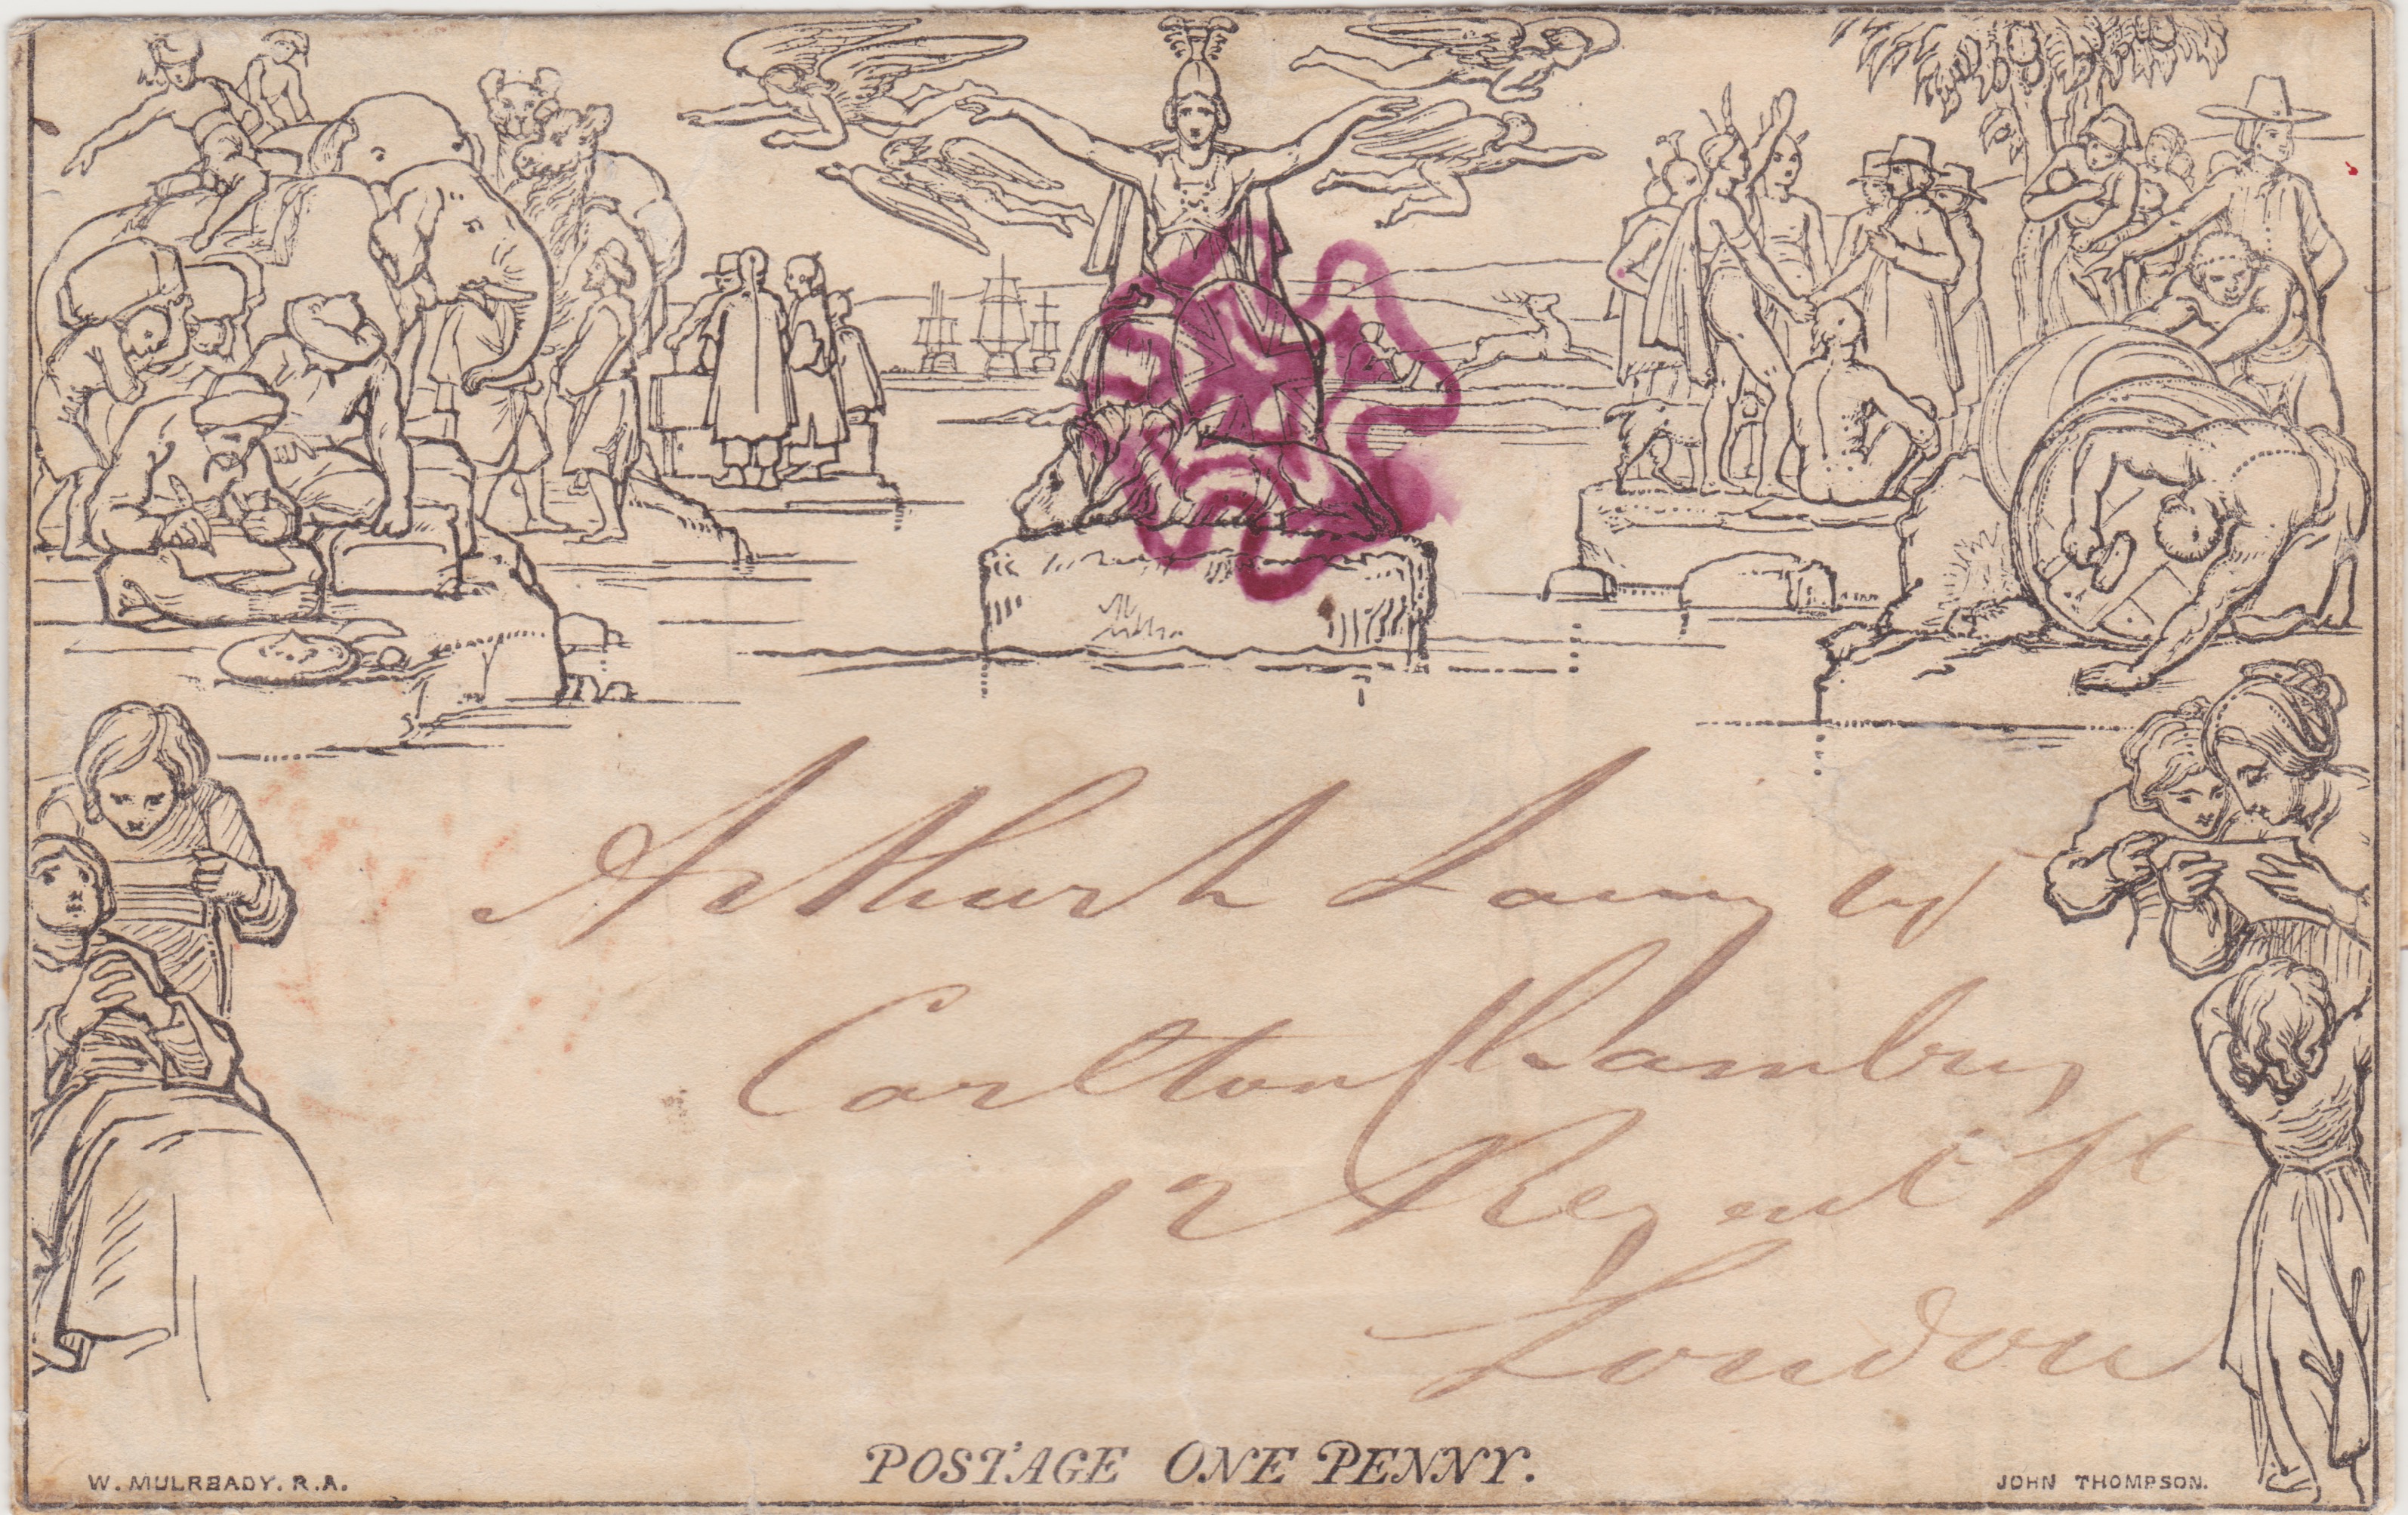 Arthur Lamy Esq
Carlton Chambers
12 Regent St
London
POSTAGE ONE PENNY.
W. MULREADY. R.A.
JOHN THOMPSON.